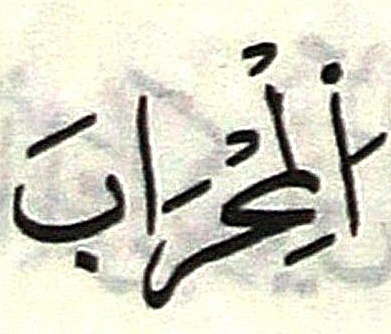 ٱلْمِحْرَابَ